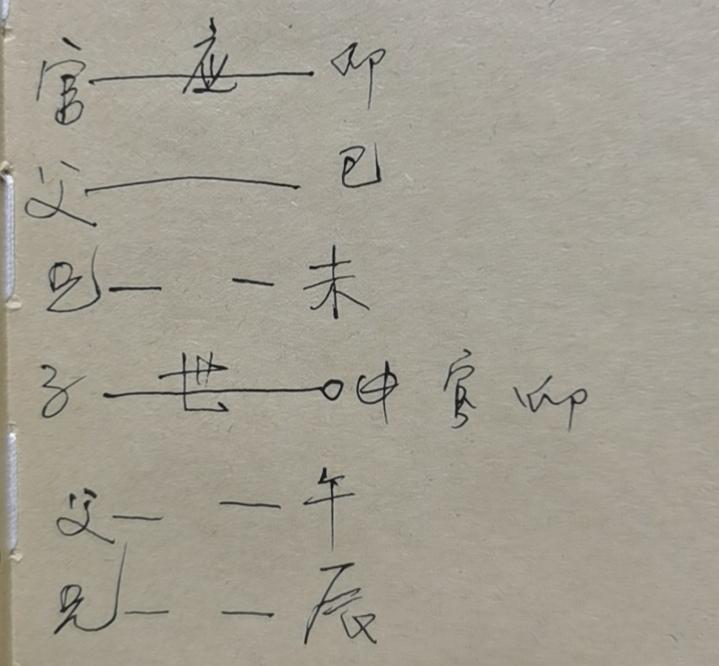 官 应 卯
父 巳
兄 未
子 世 申 官 卯
父 午
兄 辰